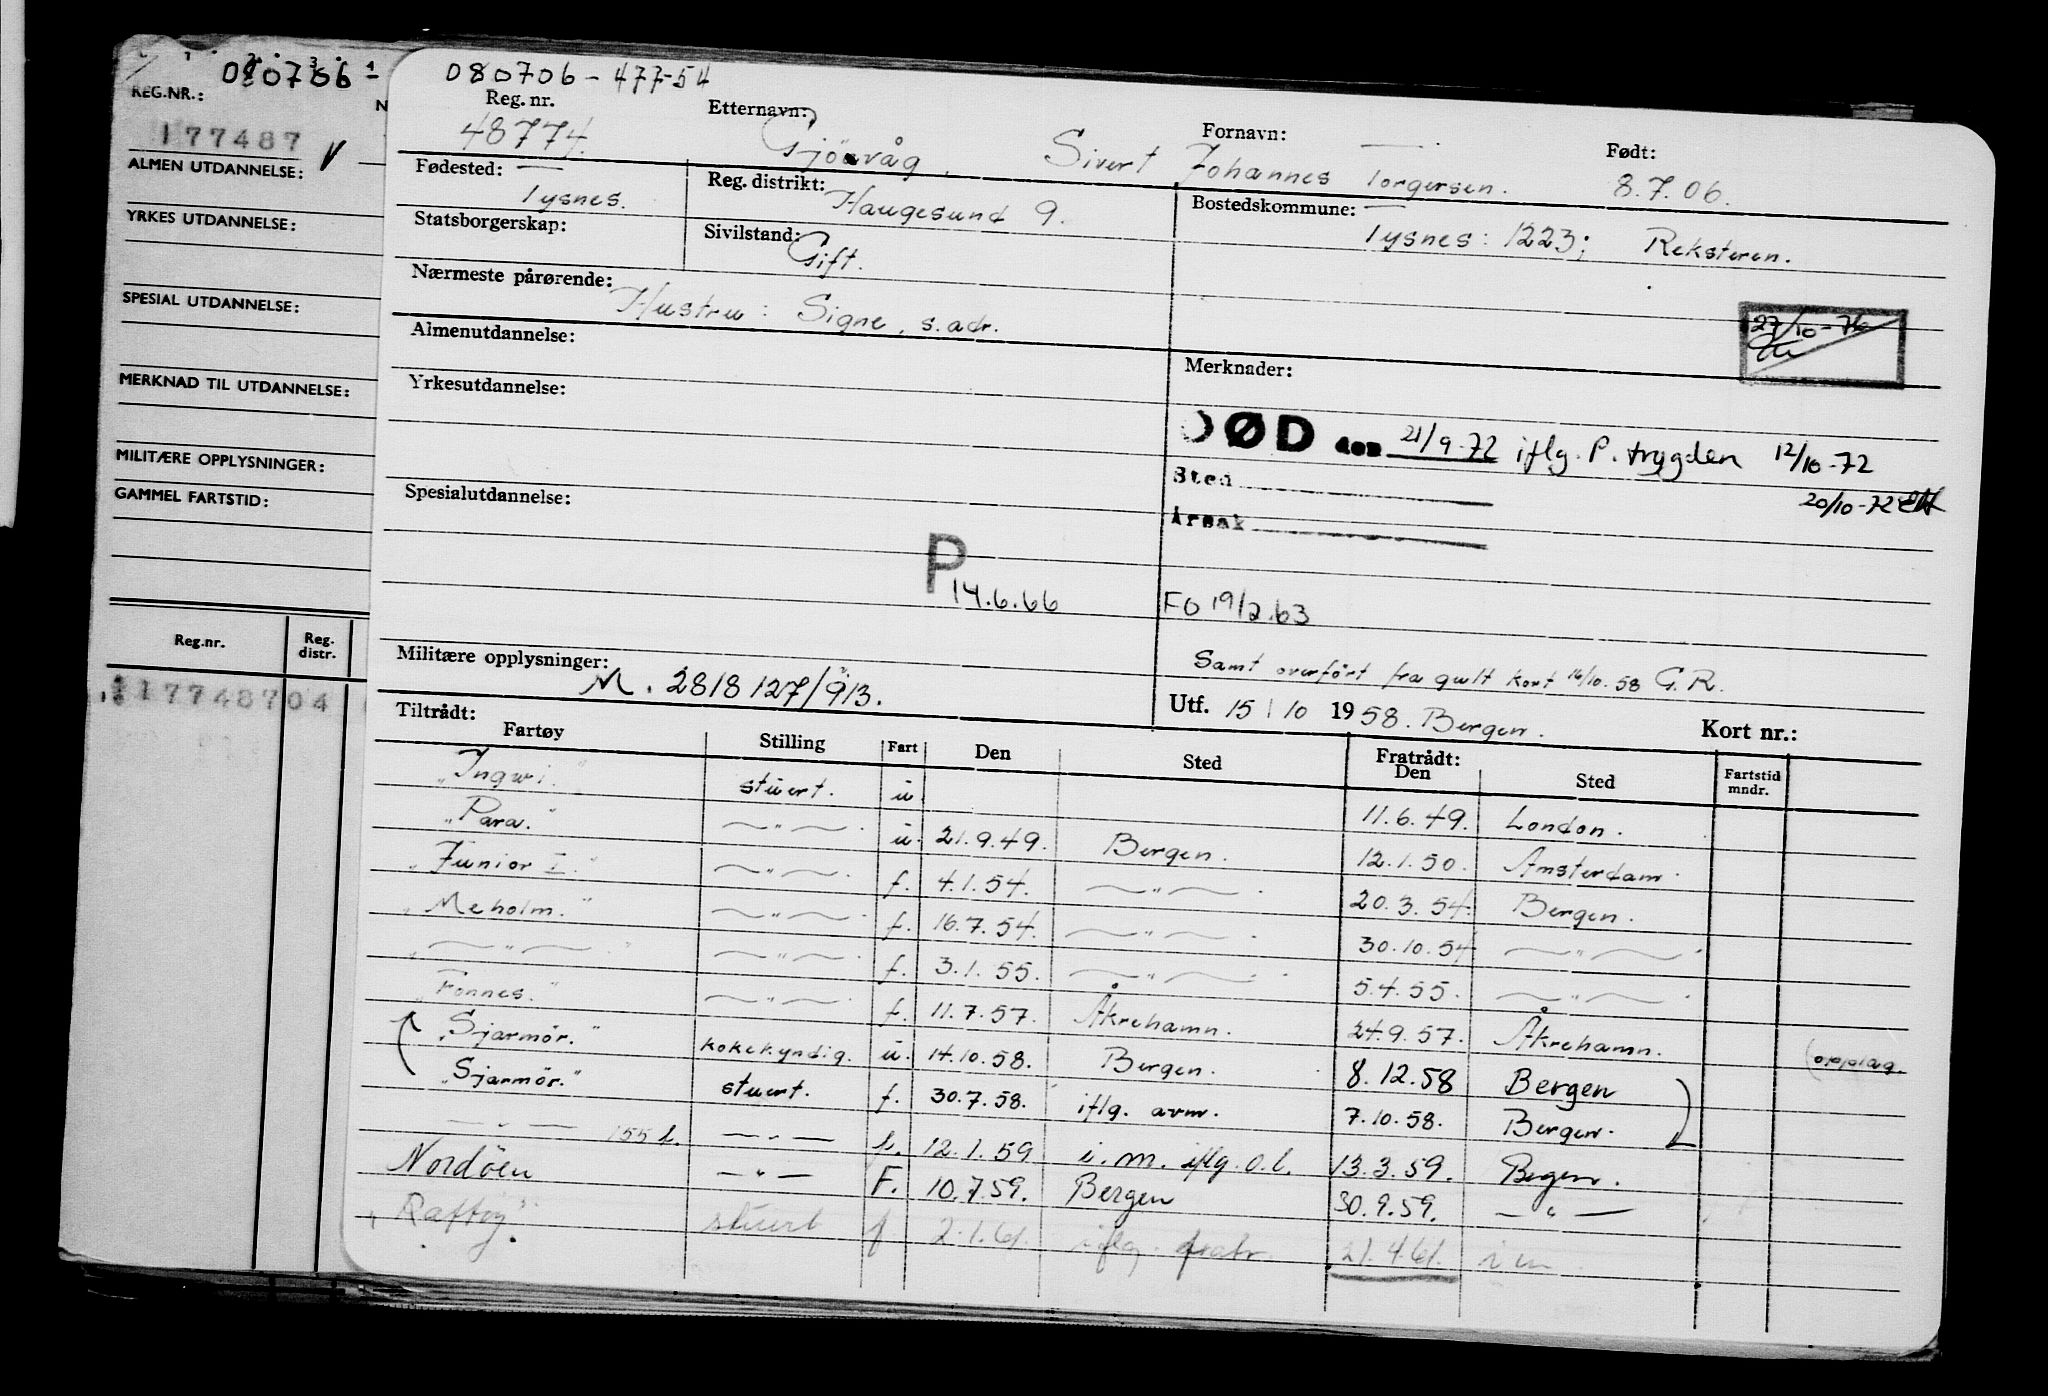 080706-
REG.NR.:
177487
ALMEN UTDANNELSE:
YRKES UTDANNELSE:
SPESIAL UTDANNELSE:
MERKNAD TIL UTDANNELSE:
MILITÆRE OPPLYSNINGER:
GAMMEL FARTSTID:
Reg.nr. Reg. distr.
17748704
080706-477-54
Reg. nr. Etternavn: Fornavn: Født:
48774. Gjövåg, Sivert Johannes Torgersen. 8.7.06.
Fødested: Reg. distrikt: Bostedskommune:
Tysnes. Haugesund 9. Tysnes: 1223; Reksteren.
Statsborgerskap: Sivilstand:
Gift.
Nærmeste pårørende:
Hustru: Signe, s. adr.
27/10-76
Almenutdannelse: Merknader:
Yrkesutdannelse:
DØD den 21/9-72 iflg. P. trygden 12/10-72
Sted 20/10-72
Spesialutdannelse: Årsak
P 14.6.66 FO 19/2.63
Militære opplysninger: M. 2818127/913.
Samt overført fra gult kort 16/10.58 G.R.
Utf. 15/10 1958. Bergen. Kort nr.:
Tiltrådt: Fratrådt:
Fartøy Stilling Fart Den Sted Den Sted Fartstid mndr.
"Ingwi." stuert. u. 11.6.49. London.
"Para." —"— u. 21.9.49. Bergen. 12.1.50. Amsterdam.
"Junior I." —"— f. 4.1.54. —"— 20.3.54. Bergen.
"Meholm." —"— f. 16.7.54. —"— 30.10.54 —"—
—"— —"— f. 3.1.55. —"— 5.4.55. —"—
"Fonnes." —"— f. 11.7.57. Åkrehamn. 24.9.57. Åkrehamn. (opplag.
"Sjarmör." kokekyndig. u. 14.10.58. Bergen. 8.12.58 Bergen
"Sjarmör." stuert. f. 30.7.58. iflg. avm. 7.10.58. Bergen.
—"— 155 l. —"— l. 12.1.59 i.m. iflg. o.l. 13.3.59. Begen.
Nordöen —"— F. 10.7.59. Bergen 30.9.59. —"—
"Raftöy". stuert f 2.1.61. iflg. fratr. 21.4.61. i m